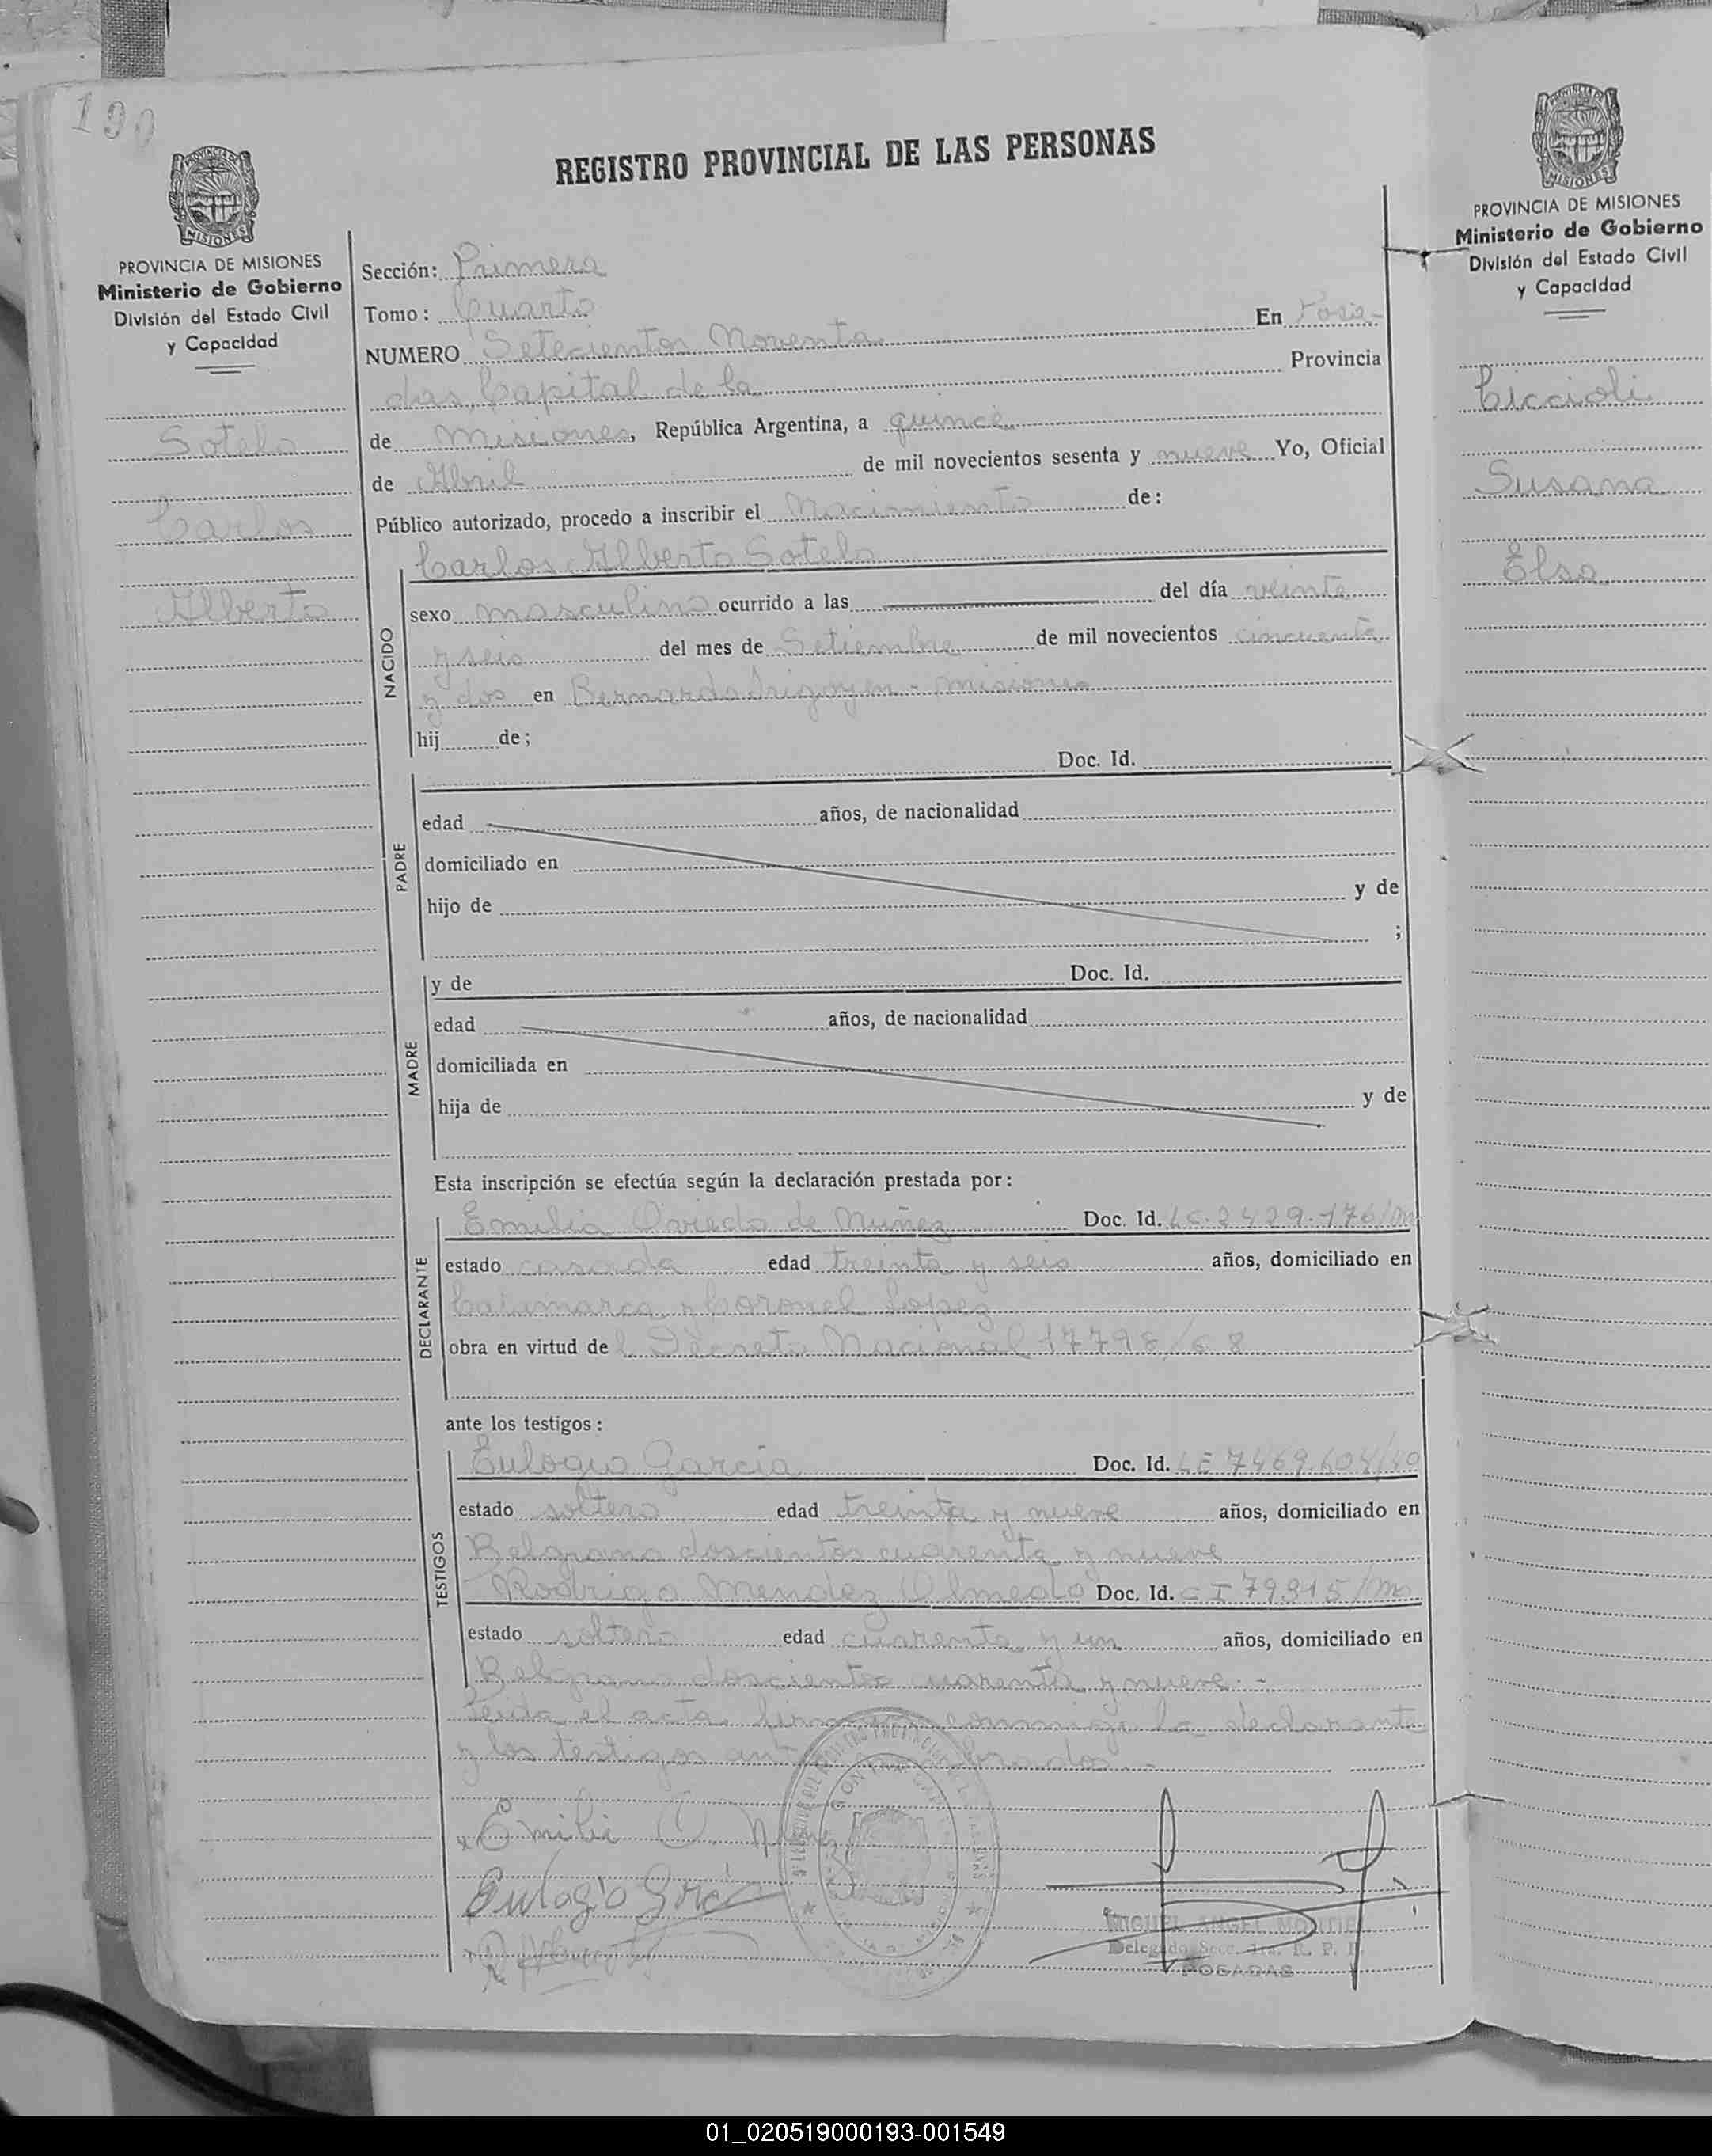 190
REGISTRO PROVINCIAL DE LAS PERSONAS
PROVINCIA DE MISIONES
Ministerio de Gobierno
División del Estado Civil
y Capacidad
Sotelo
Carlos
Alberto
Sección: Primera
Tomo: Cuarto
NUMERO Setecientos Noventa En Posa-
das, Capital de la Provincia
de Misiones, República Argentina, a quince
de Abril de mil novecientos sesenta y nueve Yo, Oficial
Público autorizado, procedo a inscribir el Nacimiento de:
NACIDO
Carlos Alberto Sotelo
sexo masculino ocurrido a las del día veinte
y seis del mes de Setiembre de mil novecientos cincuenta
y dos en Bernardo Irigoyen - Misiones
hij de;
PADRE
Doc. Id.
edad años, de nacionalidad
domiciliado en
hijo de y de
;
MADRE
y de Doc. Id.
edad años, de nacionalidad
domiciliada en
hija de y de
Esta inscripción se efectúa según la declaración prestada por:
DECLARANTE
Emilia Oviedo de Nuñez Doc. Id. LC. 2429.176/m
estado casada edad treinta y seis años, domiciliado en
Catamarca y Coronel Lopez
obra en virtud de l Decreto Nacional 17798/68
ante los testigos:
TESTIGOS
Eulogio Garcia Doc. Id. LE 7469.604/40
estado soltero edad treinta y nueve años, domiciliado en
Belgrano doscientos cuarenta y nueve
Rodrigo Mendez Olmedo Doc. Id. CI 79315/ms
estado soltero edad cuarenta y un años, domiciliado en
Belgrano doscientos cuarenta y nueve.-
leida el acta, firman conmigo la declarante
y los testigos
Emilia O. Nuñez
Eulogio Garcia
MIGUEL ANGEL
Delegado Secc. 1ra. R. P. P.
POSADAS
PROVINCIA DE MISIONES
Ministerio de Gobierno
División del Estado Civil
y Capacidad
Ciccioli
Susana
Elsa
01_020519000193-001549